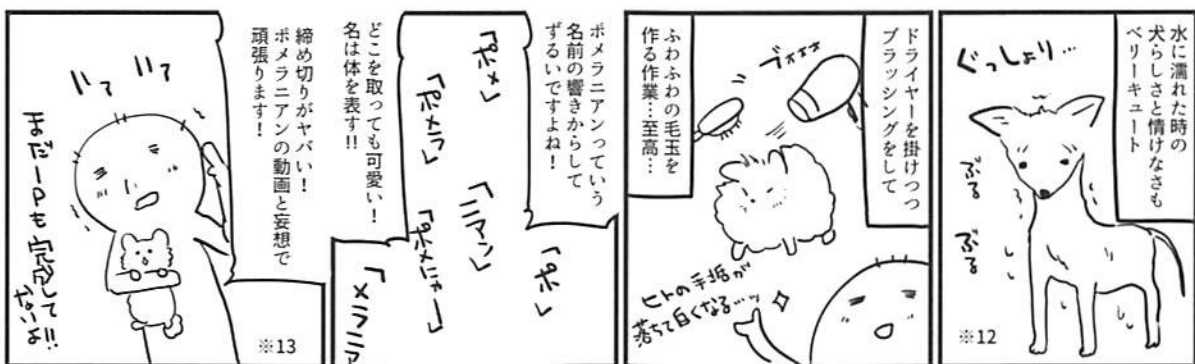 水に濡れた時の
犬らしさと情けなさも
ベリーキュート
ぐっしょり…
ぷる
ぷる
※12
ドライヤーを掛けつつ
ブラッシングをして
ブオオオ
ふわふわの毛玉を
作る作業…至高…
ヒトの手垢が
落ちて白くなる…ッ
ポメラニアンっていう
名前の響きからして
ずるいですよね！
「ポメ」
「ポメラ」
「ニアン」
「ポ」
「ポメにゃー」
「メラニア
どこを取っても可愛い！
名は体を表す!!
締め切りがヤバい！
ポメラニアンの動画と妄想で
頑張ります！
まだ1Pも完成して
ないよ!!
※13